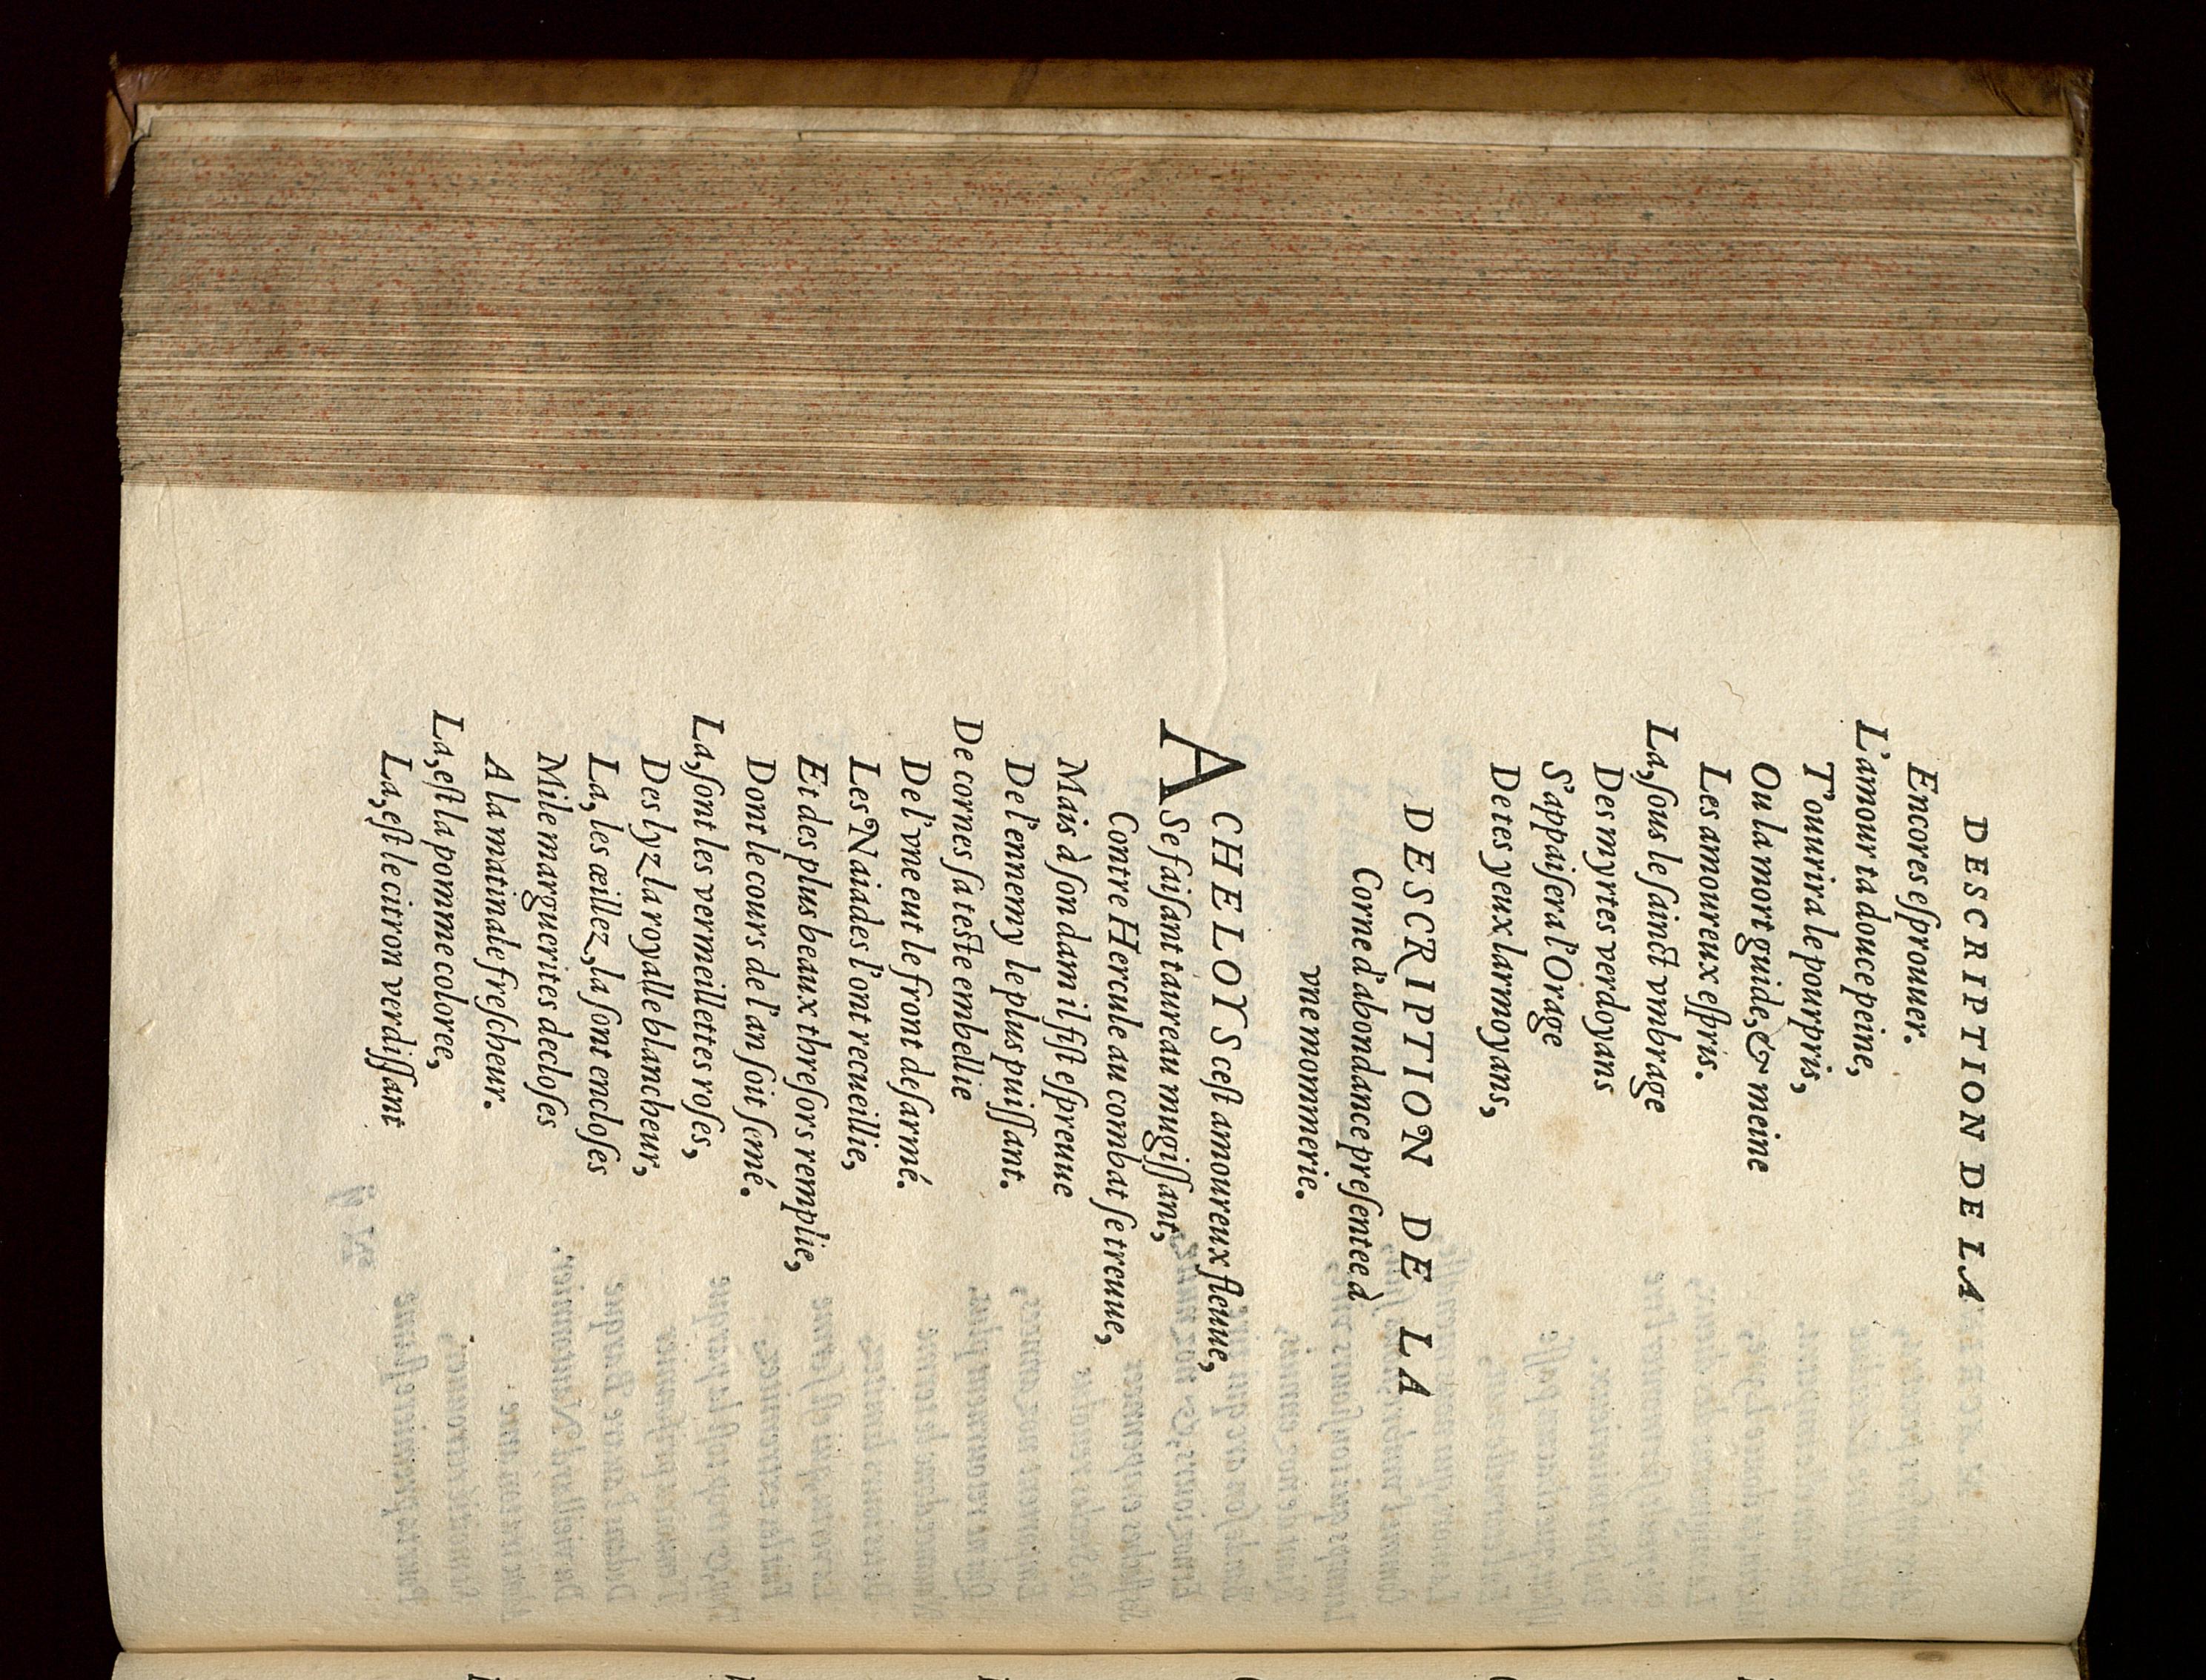 DESCRIPTION DE LA
Encores eſprouuer.
L'amour ta douce peine,
T'ouurira le pourpris,
Ou la mort guide, & meine
Les amoureux eſpris.
La, ſous le ſainct vmbrage
Des myrtes verdoyans
S'appaiſera l'Orage
De tes yeux larmoyans,
DESCRIPTION DE LA
Corne d'abondance preſentee à
vne mommerie.
ACHELOYS ceſt amoureux fleuue,
Se faiſant taureau mugiſſant,
Contre Hercule au combat ſe treuue,
Mais à ſon dam il fiſt eſpreuue
De l'ennemy le plus puiſſant.
De cornes ſa teſte embellie
De l'vne eut le front deſarmé.
Les Naiades l'ont recueillie,
Et des plus beaux threſors remplie,
Dont le cours de l'an ſoit ſemé.
La, ſont les vermeillettes roſes,
Des lyz la royalle blancheur,
La, les œillez, la ſont encloſes
Mile marguerites decloſes
A la matinale freſcheur.
La, eſt la pomme coloree,
La, eſt le citron verdiſſant